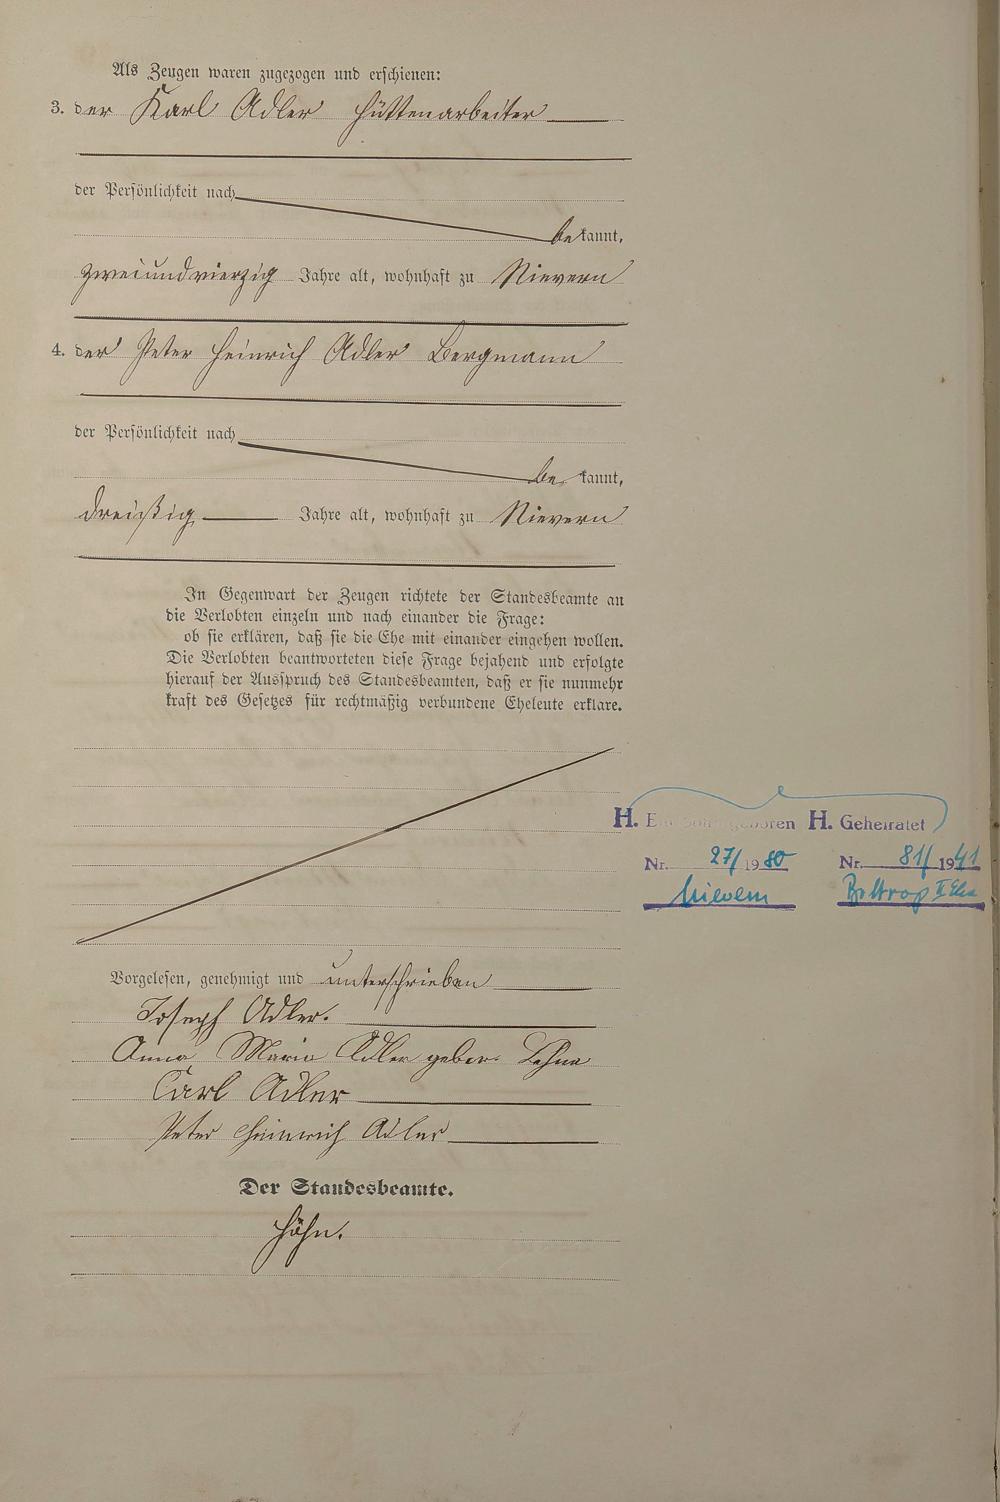 Als Zeugen waren zugezogen und erschienen:
3. der Karl Adler Hüttenarbeiter
der Persönlichkeit nach
bekannt,
zweiundvierzig Jahre alt, wohnhaft zu Nievern
4. der Peter Heinrich Adler Bergmann
der Persönlichkeit nach
be kannt,
dreißig Jahre alt, wohnhaft zu Nievern
In Gegenwart der Zeugen richtete der Standesbeamte an
die Verlobten einzeln und nach einander die Frage:
ob sie erklären, daß sie die Ehe mit einander eingehen wollen.
Die Verlobten beantworteten diese Frage bejahend und erfolgte
hierauf der Ausspruch des Standesbeamten, daß er sie nunmehr
kraft des Gesetzes für rechtmäßig verbundene Eheleute erkläre.
H. Ein Sohn geboren H. Geheiratet
Nr. 27/1980 Nr. 81/1941
Nievern Bottrop II
Vorgelesen, genehmigt und unterschrieben
Joseph Adler.
Anna Maria Adler gebor. Lehne
Carl Adler
Peter Heinrich Adler
Der Standesbeamte.
Höhn.